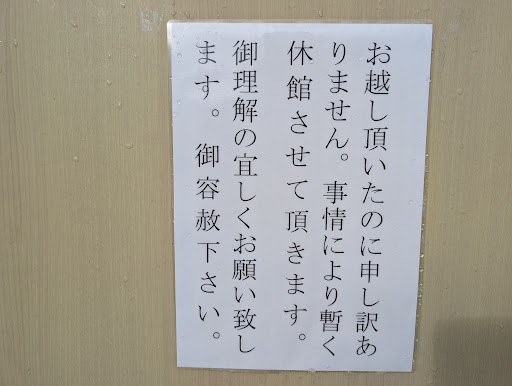 お越し頂いたのに申し訳あ
りません。事情により暫く
休館させて頂きます。
御理解の宜しくお願い致し
ます。御容赦下さい。